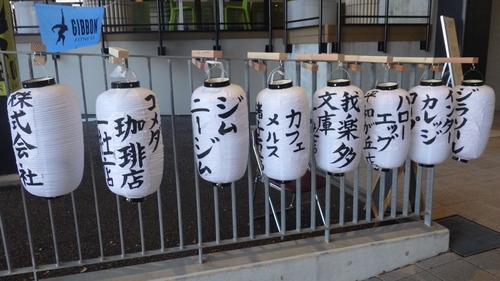 GIBBON
FITNESS
株式会社
コメダ
珈琲店
一社一店
ジム
ニージム
カフェ
メルス
我楽多
文庫
ハロー
エッグ
カレッジ
ジラソーレ